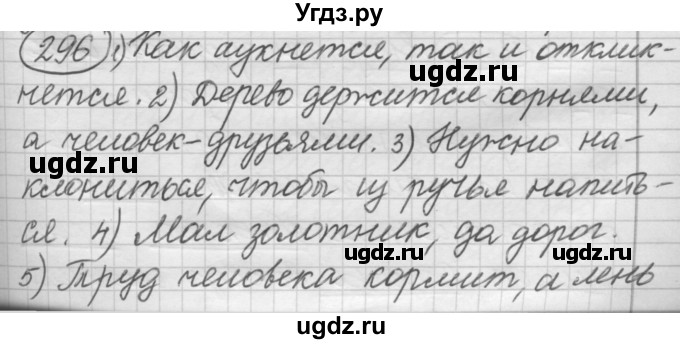 Угдз.ру
296 1) Как аукнется, так и отклик-
нется. 2) Дерево держится корнями,
а человек-друзьями. 3) Нужно на-
клониться, чтобы из ручья напить-
ся. 4) Мал золотник, да дорог.
5) Труд человека кормит, а лень
ugdz.ru
ugdz.ru
ugdz.ru
ugdz.ru
ugdz.ru
ugdz.ru
ugdz.ru
ugdz.ru